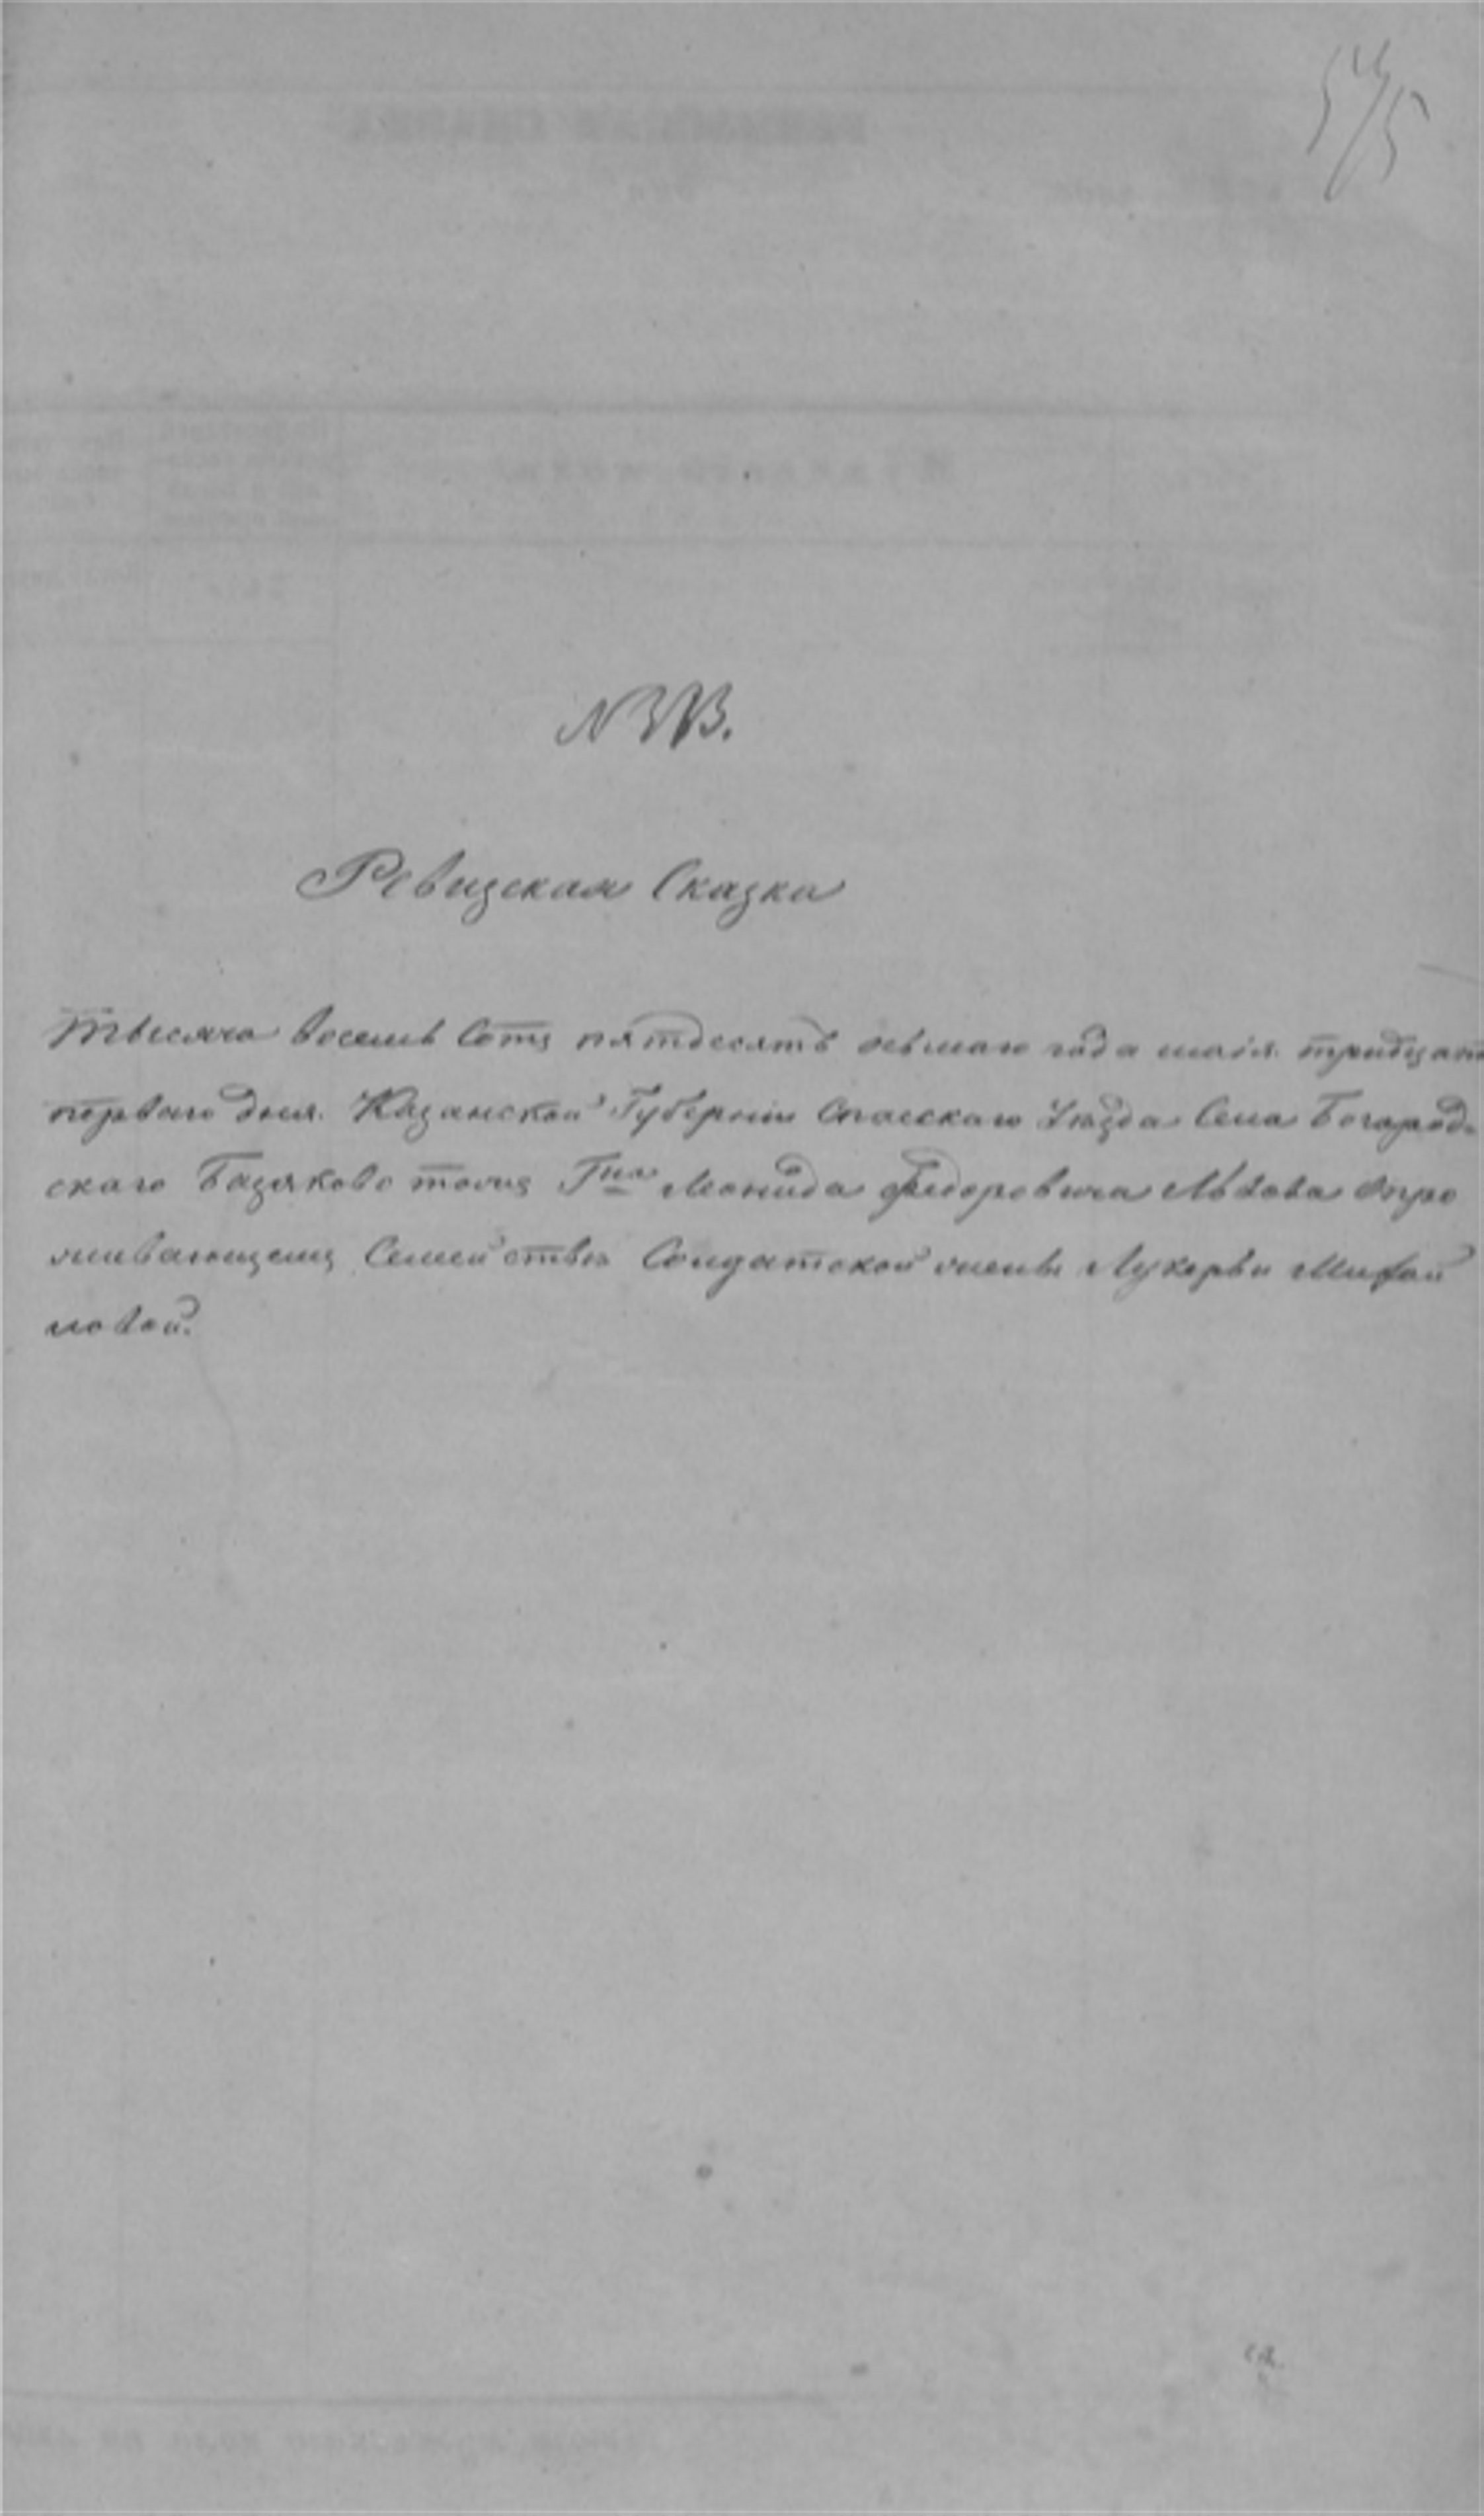 Ревизская Сказка
Тысяча восемь Сотъ пятдесятъ осьмаго года маія тридцать
перваго дня. Казанской Губерніи Спасскаго Уѣзда Села Богород-
скаго Базяково тожъ Г на Леонида Федоровича Львова о про
живающемъ Семействѣ Солдатской жены Лукерьи Михай
ловой.